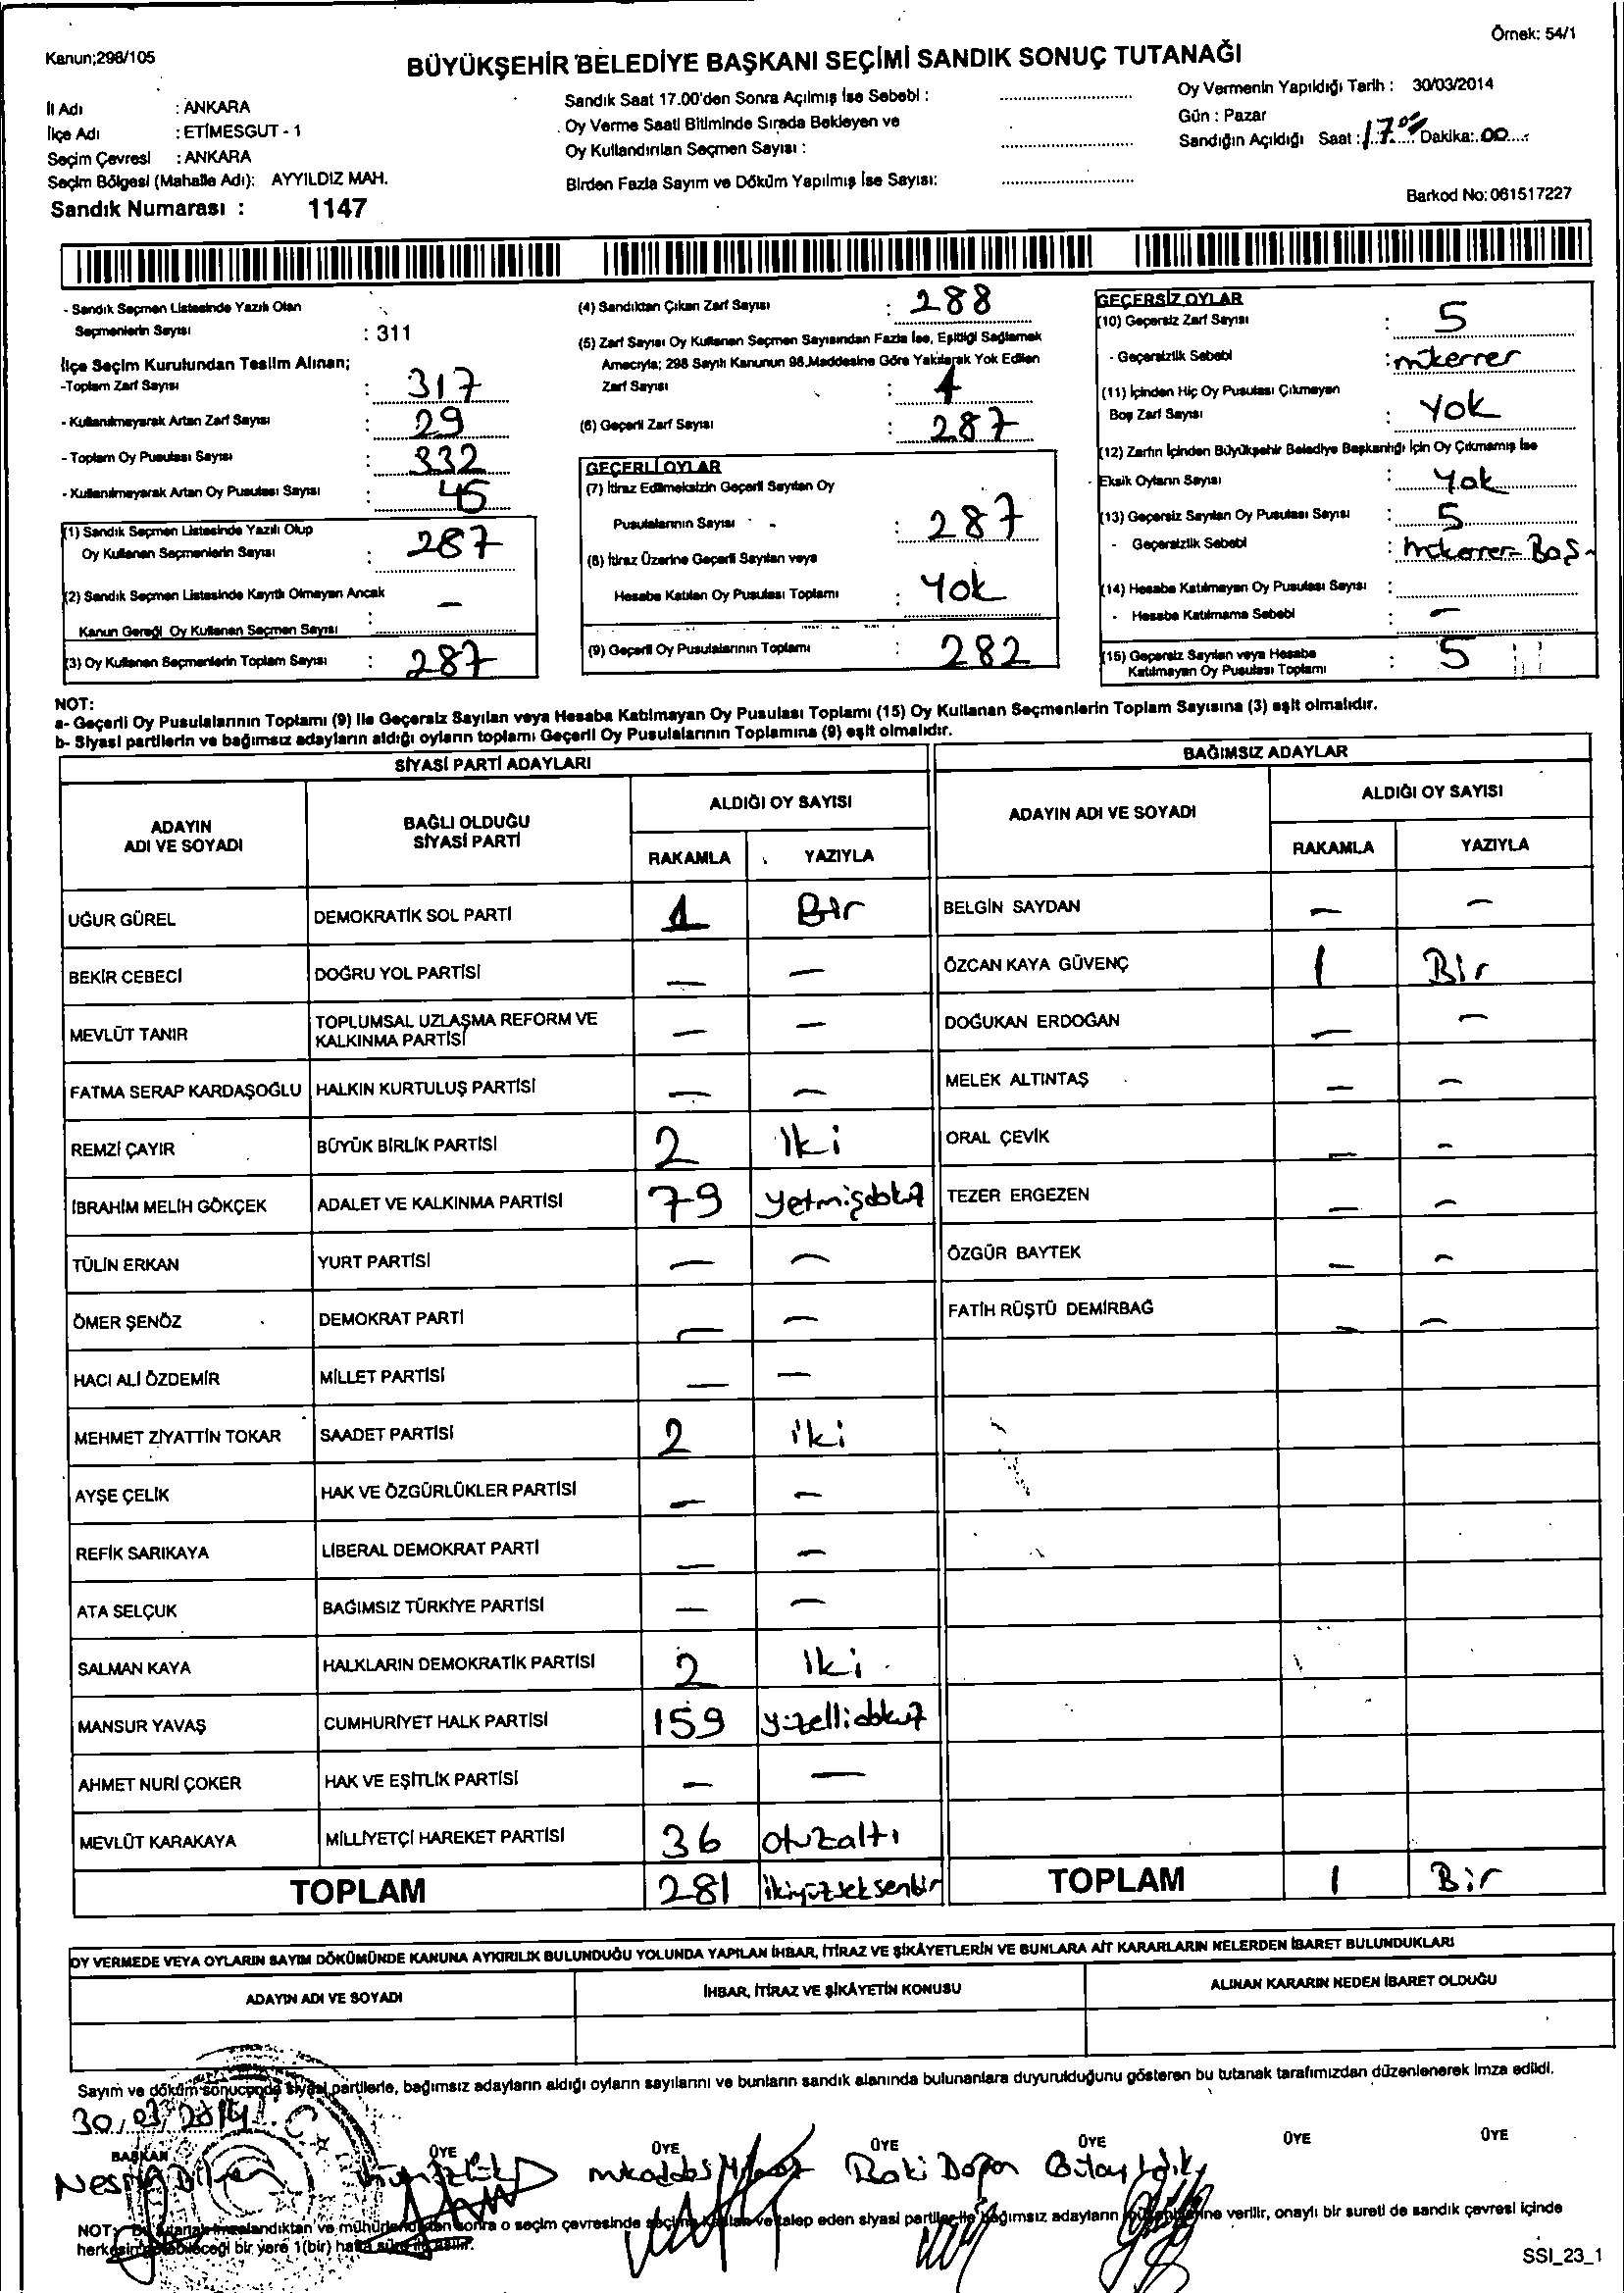 Örnek: 54/1
Kanun;298/105
BÜYÜKŞEHİR BELEDİYE BAŞKANI SEÇİMİ SANDIK SONUÇ TUTANAĞI
İl Adı : ANKARA
İlçe Adı : ETİMESGUT - 1
Seçim Çevresi : ANKARA
Seçim Bölgesi (Mahalle Adı): AYYILDIZ MAH.
Sandık Numarası : 1147
Sandık Saat 17.00'den Sonra Açılmış İse Sebebi :
Oy Verme Saati Bitiminde Sırada Bekleyen ve
Oy Kullandırılan Seçmen Sayısı :
Birden Fazla Sayım ve Döküm Yapılmış İse Sayısı:
Oy Vermenin Yapıldığı Tarih : 30/03/2014
Gün : Pazar
Sandığın Açıldığı Saat : 17 00 Dakika: 00
Barkod No: 061517227
- Sandık Seçmen Listesinde Yazılı Olan
Seçmenlerin Sayısı : 311
İlçe Seçim Kurulundan Teslim Alınan;
-Toplam Zarf Sayısı : 317
- Kullanılmayarak Artan Zarf Sayısı : 29
- Toplam Oy Pusulası Sayısı : 332
- Kullanılmayarak Artan Oy Pusulası Sayısı : 45
(1) Sandık Seçmen Listesinde Yazılı Olup
Oy Kullanan Seçmenlerin Sayısı : 287
(2) Sandık Seçmen Listesinde Kayıtlı Olmayan Ancak
Kanun Gereği Oy Kullanan Seçmen Sayısı : —
(3) Oy Kullanan Seçmenlerin Toplam Sayısı : 287
(4) Sandıktan Çıkan Zarf Sayısı : 288
(5) Zarf Sayısı Oy Kullanan Seçmen Sayısından Fazla İse, Eşitliği Sağlamak
Amacıyla; 298 Sayılı Kanunun 98.Maddesine Göre Yakılarak Yok Edilen
Zarf Sayısı : 1
(6) Geçerli Zarf Sayısı : 287
GEÇERLİ OYLAR
(7) İtiraz Edilmeksizin Geçerli Sayılan Oy
Pusulalarının Sayısı : 287
(8) İtiraz Üzerine Geçerli Sayılan veya
Hesaba Katılan Oy Pusulası Toplamı : Yok
(9) Geçerli Oy Pusulalarının Toplamı : 282
GEÇERSİZ OYLAR
(10) Geçersiz Zarf Sayısı : 5
- Geçersizlik Sebebi : mükerrer
(11) İçinden Hiç Oy Pusulası Çıkmayan
Boş Zarf Sayısı : Yok
(12) Zarfın İçinden Büyükşehir Belediye Başkanlığı İçin Oy Çıkmamış İse
Eksik Oyların Sayısı : Yok
(13) Geçersiz Sayılan Oy Pusulası Sayısı : 5
- Geçersizlik Sebebi : mükerrer- Boş-
(14) Hesaba Katılmayan Oy Pusulası Sayısı :
- Hesaba Katılmama Sebebi : —
(15) Geçersiz Sayılan veya Hesaba
Katılmayan Oy Pusulası Toplamı : 5
NOT:
a- Geçerli Oy Pusulalarının Toplamı (9) ile Geçersiz Sayılan veya Hesaba Katılmayan Oy Pusulası Toplamı (15) Oy Kullanan Seçmenlerin Toplam Sayısına (3) eşit olmalıdır.
b- Siyasi partilerin ve bağımsız adayların aldığı oyların toplamı Geçerli Oy Pusulalarının Toplamına (9) eşit olmalıdır.
SİYASİ PARTİ ADAYLARI
ADAYIN ADI VE SOYADI
BAĞLI OLDUĞU SİYASİ PARTİ
ALDIĞI OY SAYISI
RAKAMLA YAZIYLA
UĞUR GÜREL DEMOKRATİK SOL PARTİ 1 Bir
BEKİR CEBECİ DOĞRU YOL PARTİSİ — —
MEVLÜT TANIR TOPLUMSAL UZLAŞMA REFORM VE KALKINMA PARTİSİ — —
FATMA SERAP KARDAŞOĞLU HALKIN KURTULUŞ PARTİSİ — —
REMZİ ÇAYIR BÜYÜK BİRLİK PARTİSİ 2 İki
İBRAHİM MELİH GÖKÇEK ADALET VE KALKINMA PARTİSİ 79 yetmişdokuz
TÜLİN ERKAN YURT PARTİSİ — —
ÖMER ŞENÖZ DEMOKRAT PARTİ — —
HACI ALİ ÖZDEMİR MİLLET PARTİSİ — —
MEHMET ZİYATTİN TOKAR SAADET PARTİSİ 2 iki
AYŞE ÇELİK HAK VE ÖZGÜRLÜKLER PARTİSİ — —
REFİK SARIKAYA LİBERAL DEMOKRAT PARTİ — —
ATA SELÇUK BAĞIMSIZ TÜRKİYE PARTİSİ — —
SALMAN KAYA HALKLARIN DEMOKRATİK PARTİSİ 2 İki
MANSUR YAVAŞ CUMHURİYET HALK PARTİSİ 159 yüzellidokuz
AHMET NURİ ÇOKER HAK VE EŞİTLİK PARTİSİ — —
MEVLÜT KARAKAYA MİLLİYETÇİ HAREKET PARTİSİ 36 otuzaltı
TOPLAM 281 ikiyüzseksenbir
BAĞIMSIZ ADAYLAR
ADAYIN ADI VE SOYADI
ALDIĞI OY SAYISI
RAKAMLA YAZIYLA
BELGİN SAYDAN — —
ÖZCAN KAYA GÜVENÇ 1 Bir
DOĞUKAN ERDOĞAN — —
MELEK ALTINTAŞ — —
ORAL ÇEVİK — —
TEZER ERGEZEN — —
ÖZGÜR BAYTEK — —
FATİH RÜŞTÜ DEMİRBAĞ — —
TOPLAM 1 Bir
OY VERMEDE VEYA OYLARIN SAYIM DÖKÜMÜNDE KANUNA AYKIRILIK BULUNDUĞU YOLUNDA YAPILAN İHBAR, İTİRAZ VE ŞİKÂYETLERİN VE BUNLARA AİT KARARLARIN NELERDEN İBARET BULUNDUKLARI
ADAYIN ADI VE SOYADI
İHBAR, İTİRAZ VE ŞİKÂYETİN KONUSU
ALINAN KARARIN NEDEN İBARET OLDUĞU
Sayım ve döküm sonucunda siyasi partilerle, bağımsız adayların aldığı oyların sayılarını ve bunların sandık alanında bulunanlara duyurulduğunu gösteren bu tutanak tarafımızdan düzenlenerek imza edildi.
30/03/2014
BAŞKAN ÜYE ÜYE ÜYE ÜYE ÜYE ÜYE
Baki Doğan
NOT: Bu tutanak imzalandıktan ve mühürlendikten sonra o seçim çevresinde seçime katılan ve talep eden siyasi partiler ile bağımsız adayların müşahitlerine verilir, onaylı bir sureti de sandık çevresi içinde
herkesin görebileceği bir yere 1(bir) hafta süre ile asılır.
SSI_23_1